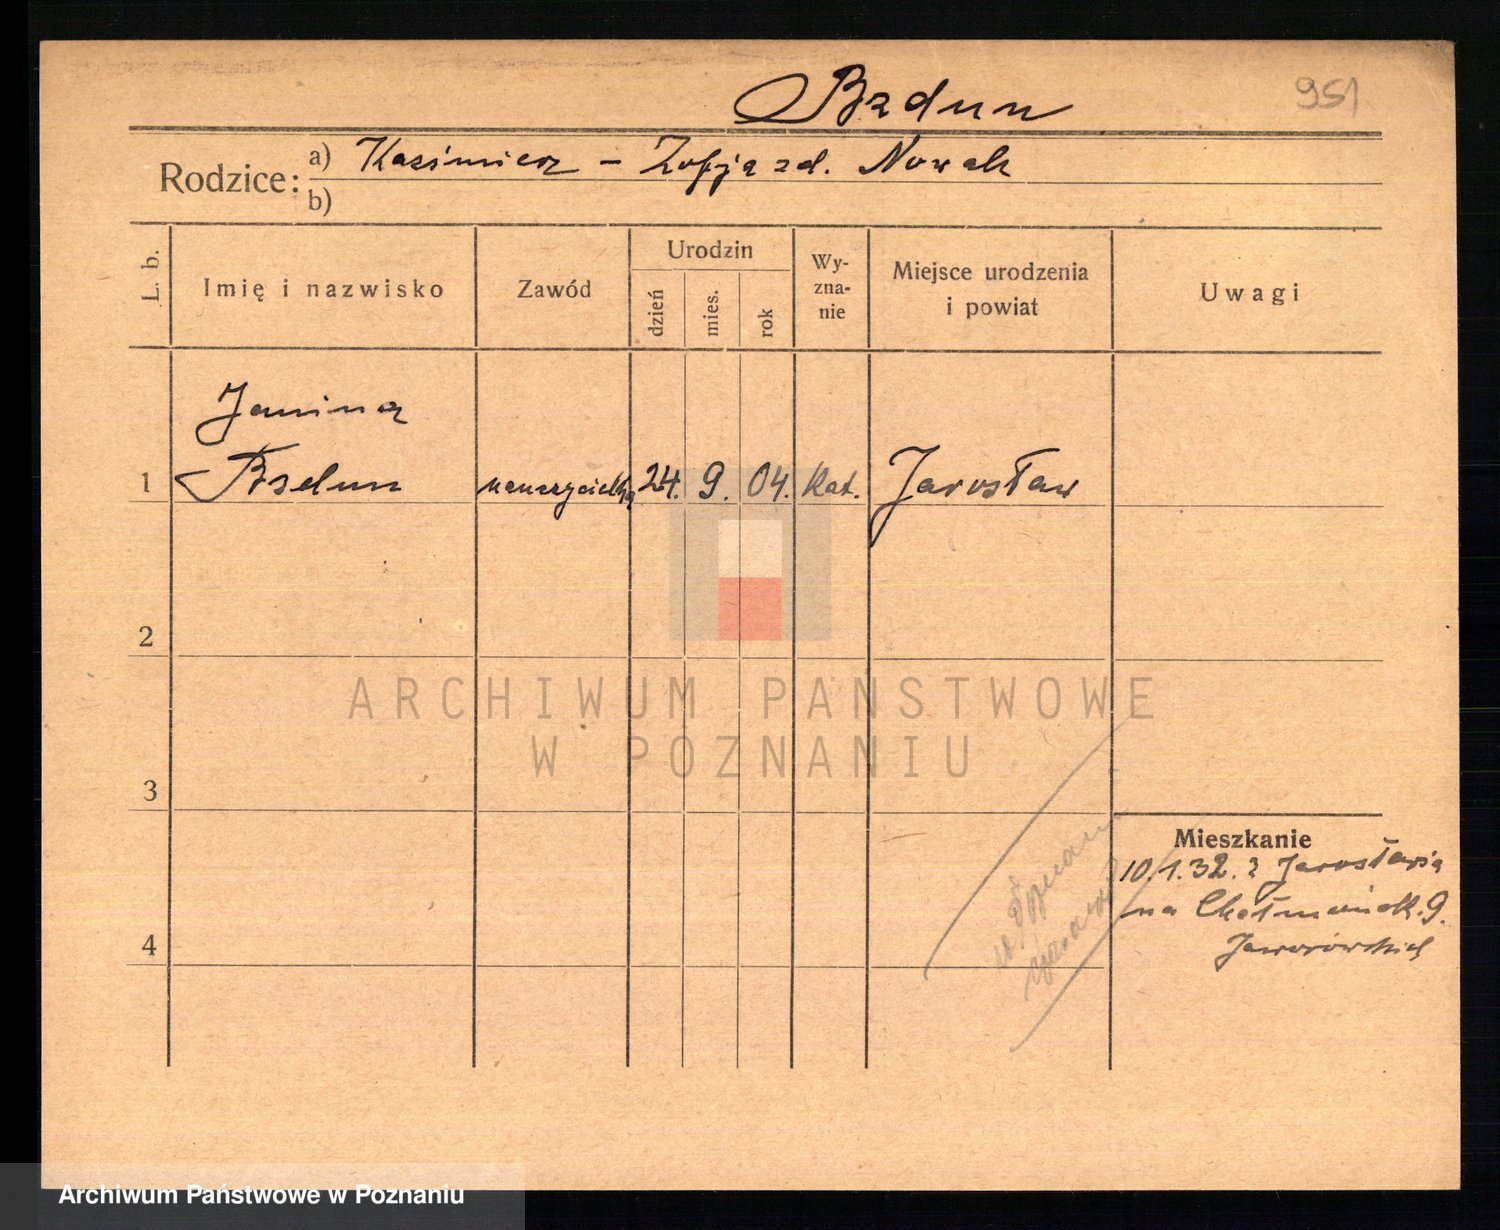 Bzdun
951
Rodzice:
a) Kazimierz – Zofja zd. Nowak
b)
L. b.
Imię i nazwisko
Zawód
Urodzin
dzień
mies.
rok
Wy-
zna-
nie
Miejsce urodzenia
i powiat
Uwagi
Janina
1 Bzdun nauczycielka 24. 9. 04. kat. Jarosław
2
ARCHIWUM PAŃSTWOWE
W POZNANIU
3
Mieszkanie
10.1.32. z Jarosławia
na 9.
4
Archiwum Państwowe w Poznaniu